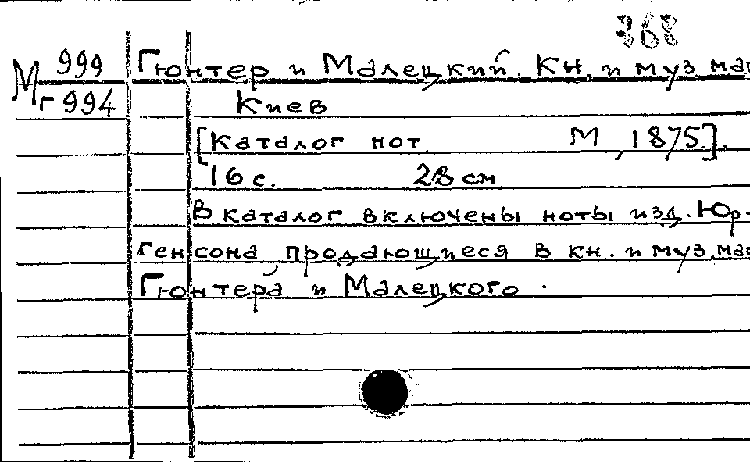 368
М 999 Гюнтер и Малецкий. Кн. и муз. маг
г 994 Киев
[Каталог нот М, 1875].
16 с. 28 см
В каталог включены ноты изд. Юр-
генсона, продающиеся в кн. и муз. маг
Гюнтера и Малецкого.